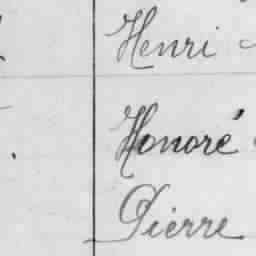 Henri
Honoré
Pierre